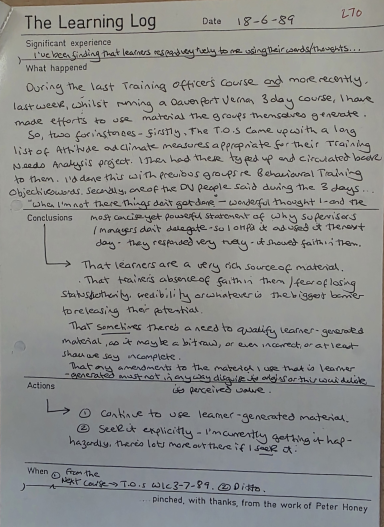 270
The Learning Log Date 18-6-89
Significant experience
I've been finding that learners respond very freely to me using their words/thoughts...
What happened
During the last Training Officers Course and more recently,
last week, whilst running a Davenport Vernon 3 day course, I have
made efforts to use material the groups themselves generate.
So, two for instances - firstly. The T.O.s came up with a long
list of Attitude and climate measures appropriate for their Training
Needs Analysis project. I then had these typed up and circulated back
to them. I'd done this with previous groups re Behavioural Training
Objective words. Secondly, one of the DV people said during the 3 days...
"When I'm not there things don't get done" - wonderful thought! - and the
Conclusions most concise yet powerful statement of why supervisors
/managers don't delegate - so I OHP'd it and used it the next
day - they responded very - it showed faith in them.
→ That learners are a very rich source of material.
. That trainers absence of faith in them / fear of losing
status/authority, credibility or whatever is the biggest barrier
to releasing their potential.
That sometimes there's a need to qualify learner-generated
material, as it may be a bit raw, or even incorrect, or at least
shall we say incomplete.
That any amendments to the material I use that is learner
-generated must not in any way disguise its origins or this would
Actions its perceived value.
→ ① Continue to use learner-generated material.
② Seek it explicitly - I'm currently getting it hap-
hazardly, there's lots more out there if I seek it.
When ① From the
Next Course → T.O.s w/c 3-7-89. ② Ditto.
... pinched, with thanks, from the work of Peter Honey